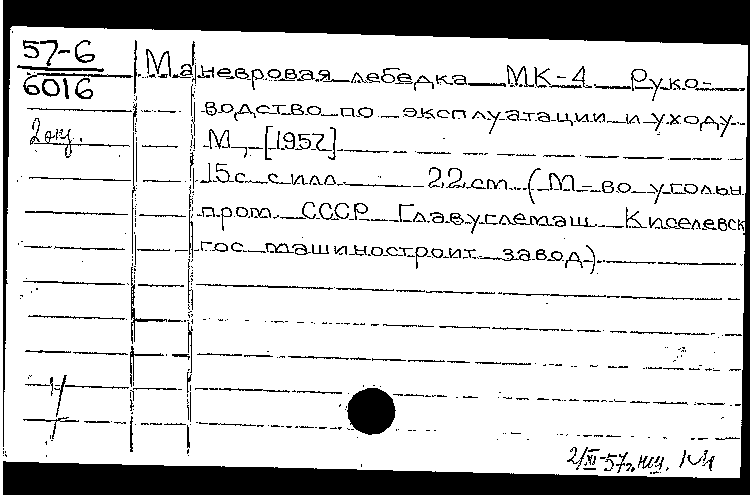 57-6
6016
Маневровая лебедка МК-4 Руко-
водство по эксплуатации и уходу
М, [1957]
15с с илл. 22cm (М-во угольн
пром. СССР Главуглемаш Киселевск
гос машиностроит завод)
2/XI-57г.